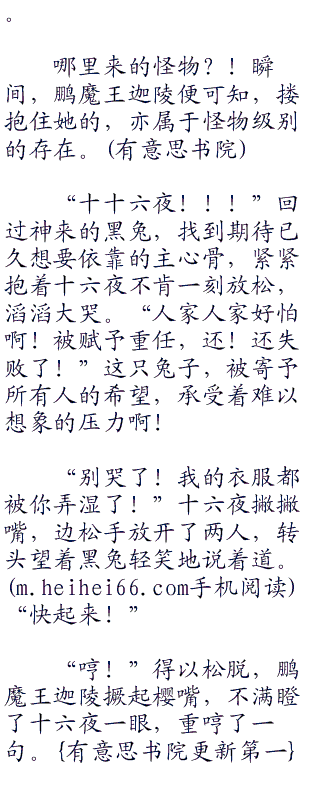 。
哪里来的怪物?!瞬
间，鹏魔王迦陵便可知，搂
抱住她的，亦属于怪物级别
的存在。(有意思书院)
“十十六夜!!!”回
过神来的黑兔，找到期待已
久想要依靠的主心骨，紧紧
抱着十六夜不肯一刻放松，
滔滔大哭。“人家人家好怕
啊!被赋予重任，还!还失
败了!”这只兔子，被寄予
所有人的希望，承受着难以
想象的压力啊!
“别哭了!我的衣服都
被你弄湿了!”十六夜撇撇
嘴，边松手放开了两人，转
头望着黑兔轻笑地说着道。
(m.heihei66.com手机阅读)
“快起来!”
“哼!”得以松脱，鹏
魔王迦陵撅起樱嘴，不满瞪
了十六夜一眼，重哼了一
句。{有意思书院更新第一}